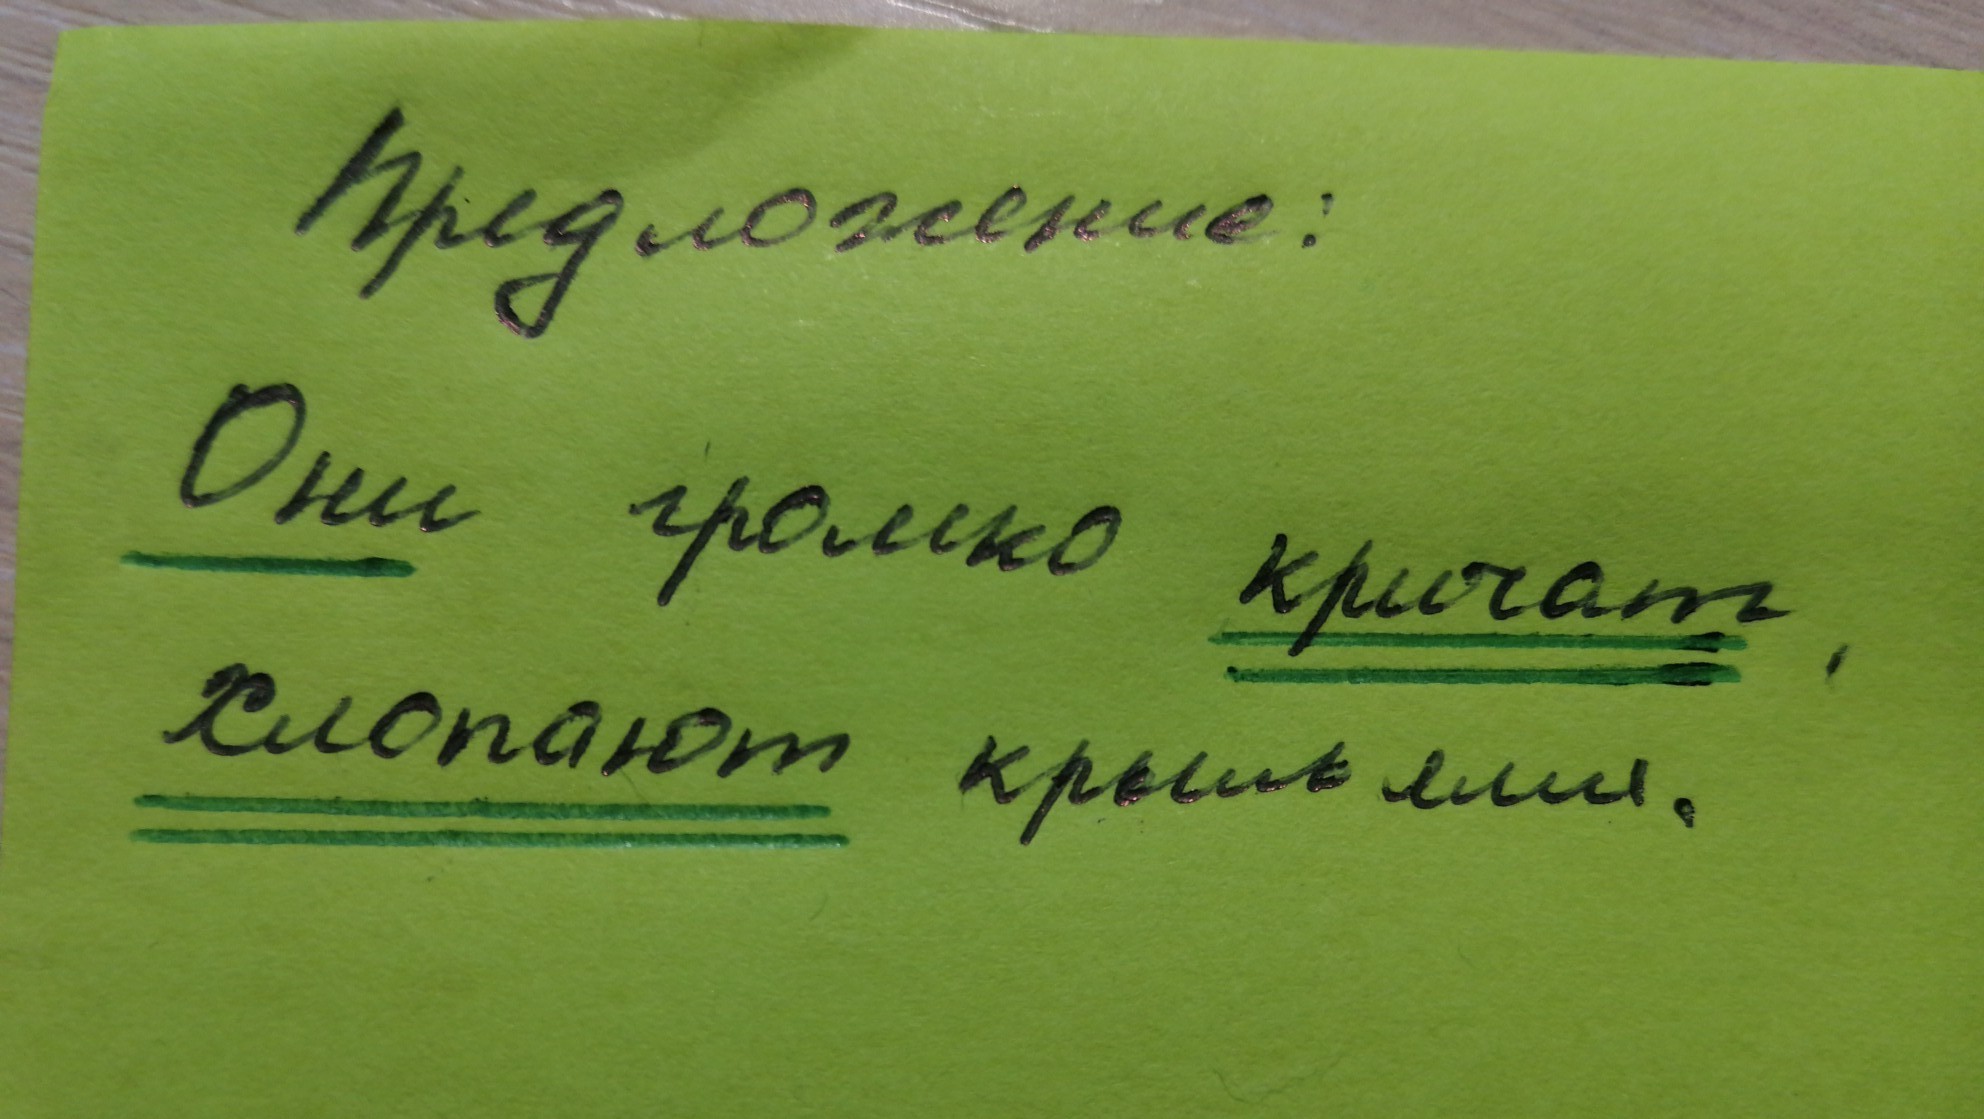 Предложение:
Они громко кричат,
хлопают крыльями.